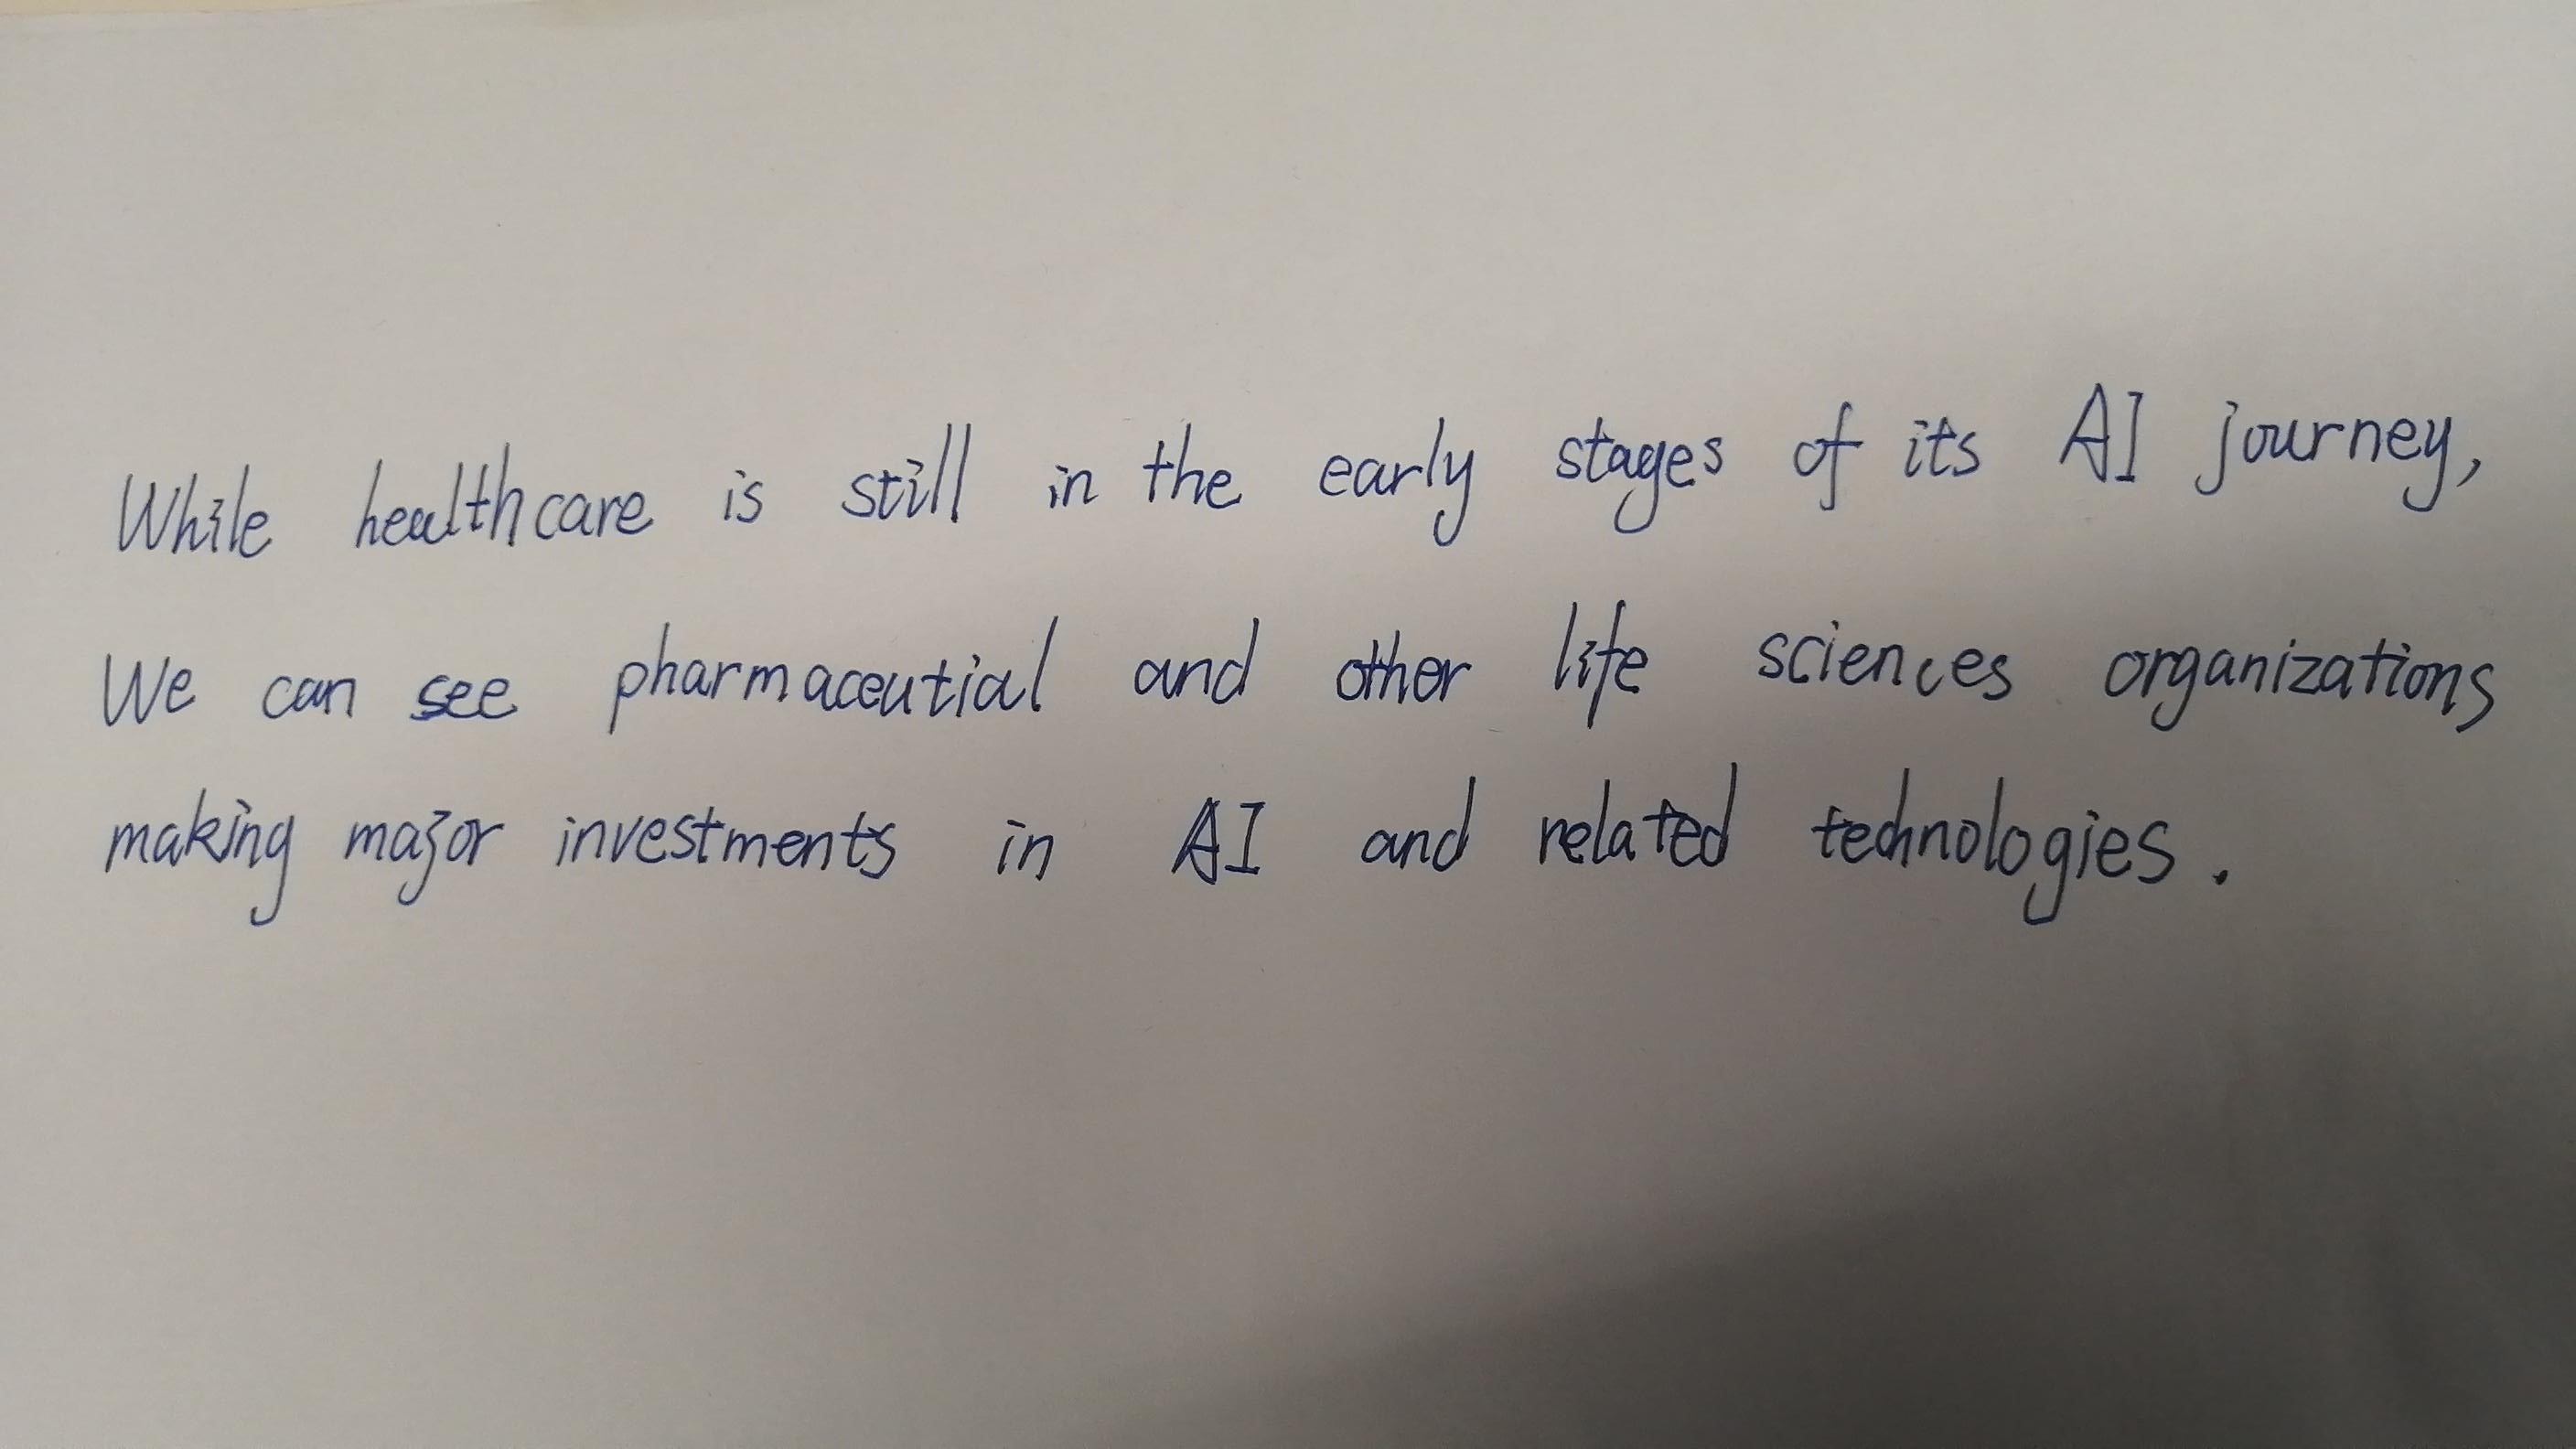 While healthcare is still in the early stages of its AI journey,
We can see pharmaceutial and other life sciences organizations
making major investments in AI and related technologies.